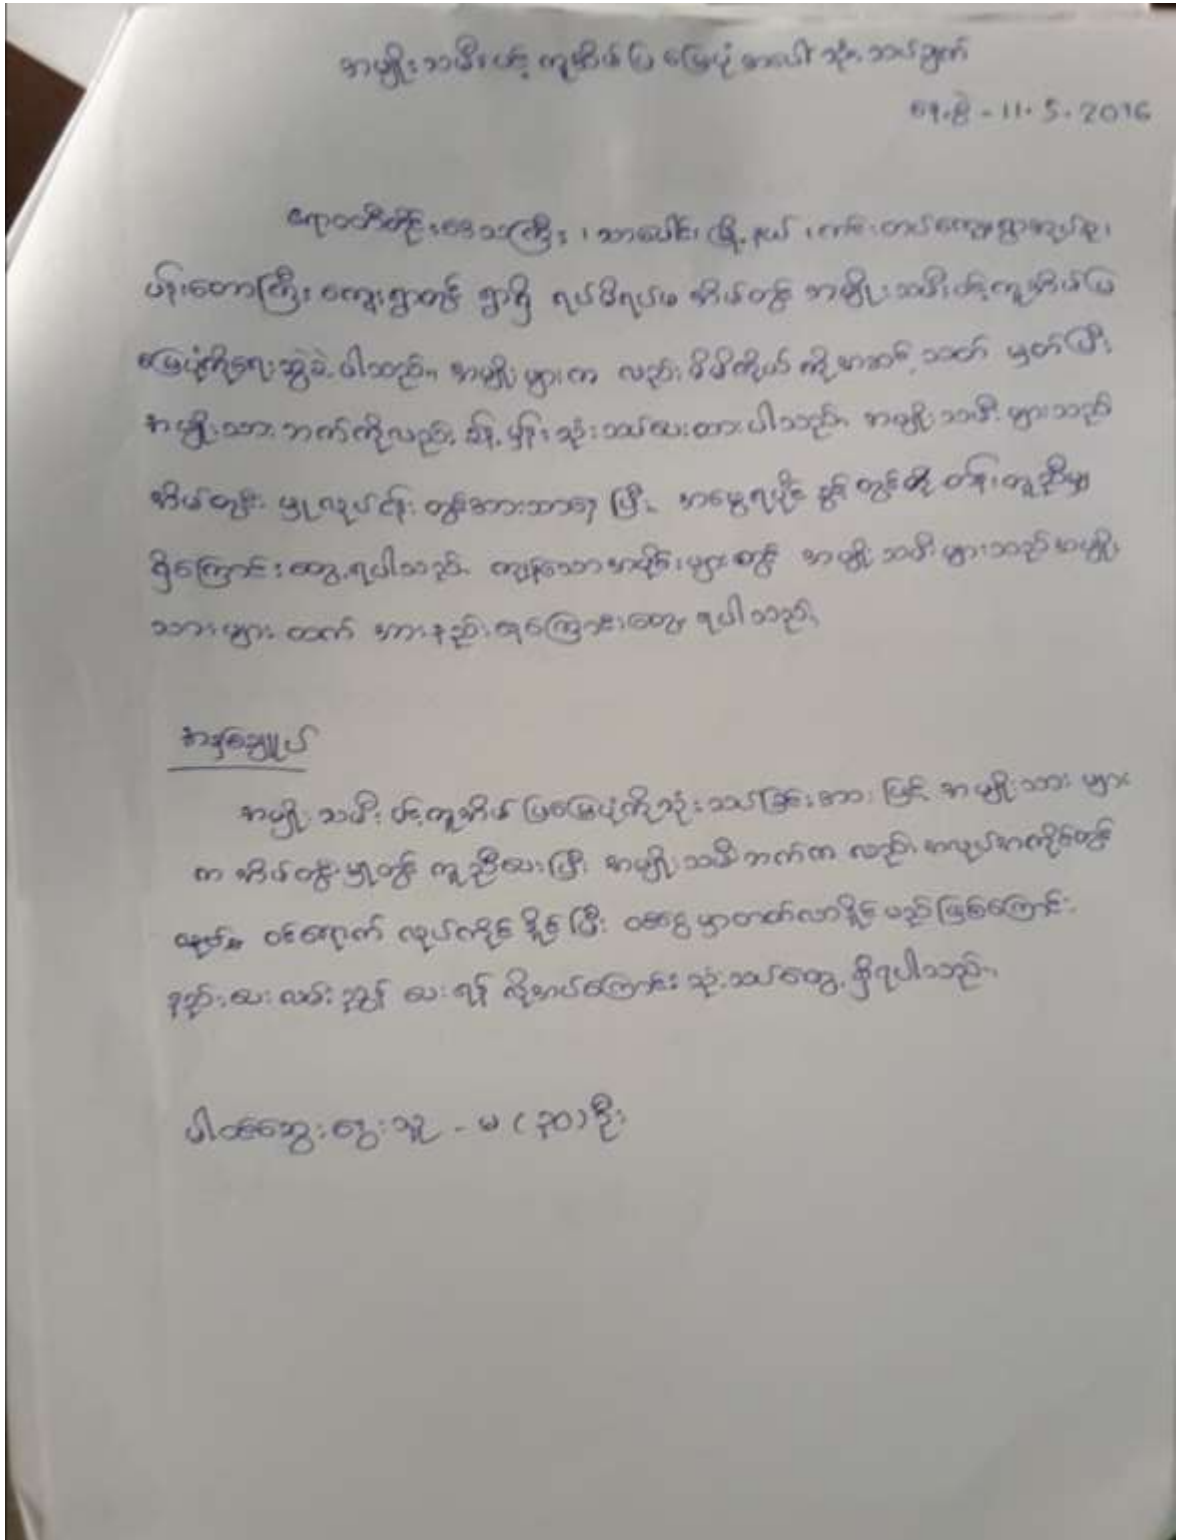 အမျိုးသမီးပင့်ကူအိမ်ပြ မြေပုံအပေါ် သုံးသပ်ချက်
နေ့စွဲ - 11.5.2016
ဧရာဝတီတိုင်းဒေသကြီး၊ သာပေါင်းမြို့နယ်၊ ကျေးရွာအုပ်စု၊
ပန်းတောကြီးကျေးရွာတွင် ရွာရှိ ရပ်မိရပ်ဖ အိမ်တွင် အမျိုးသမီးပင့်ကူအိမ်ပြ
မြေပုံကိုရေးဆွဲခဲ့ပါသည်။ အမျိုးများက လည်း မိမိကိုယ်ကို အဆင့်သတ် မှတ်ပြီး
အမျိုးသားဘက်ကိုလည်း ခန့်မှန်းသုံးသပ်ပေးထားပါသည်။ အမျိုးသမီးများသည်
အိမ်တွင်းမှုလုပ်ငန်းတွင်အားသာနေပြီး အမွေရပိုင်ခွင့်တွင်တို့ တန်းတူညီမျှ
ရှိကြောင်းတွေ့ရပါသည်။ ကျန်သောအပိုင်းများတွင် အမျိုးသမီးများသည်အမျိုး
သားများထက် အားနည်းရကြောင်းတွေ့ရပါသည်။
အနှစ်ချုပ်
အမျိုးသမီးပင့်ကူအိမ်ပြမြေပုံကိုသုံးသပ်ခြင်းအားဖြင့် အမျိုးသားများ
က အိမ်တွင်းမှုတွင် ကူညီပေးပြီး အမျိုးသမီးဘက်က လည်း အလုပ်အကိုင်တွင်
ဝင်ရောက် လုပ်ကိုင်နိုင်ပြီး ဝင်ငွေမှာတတ်လာနိုင်မည်ဖြစ်ကြောင်း
နည်းပေးလမ်းညွှန်ပေးရန် လိုအပ်ကြောင်း သုံးသပ်တွေ့ရှိရပါသည်။
ပါဝင်ဆွေးနွေးသူ - မ (၃၀) ဦး